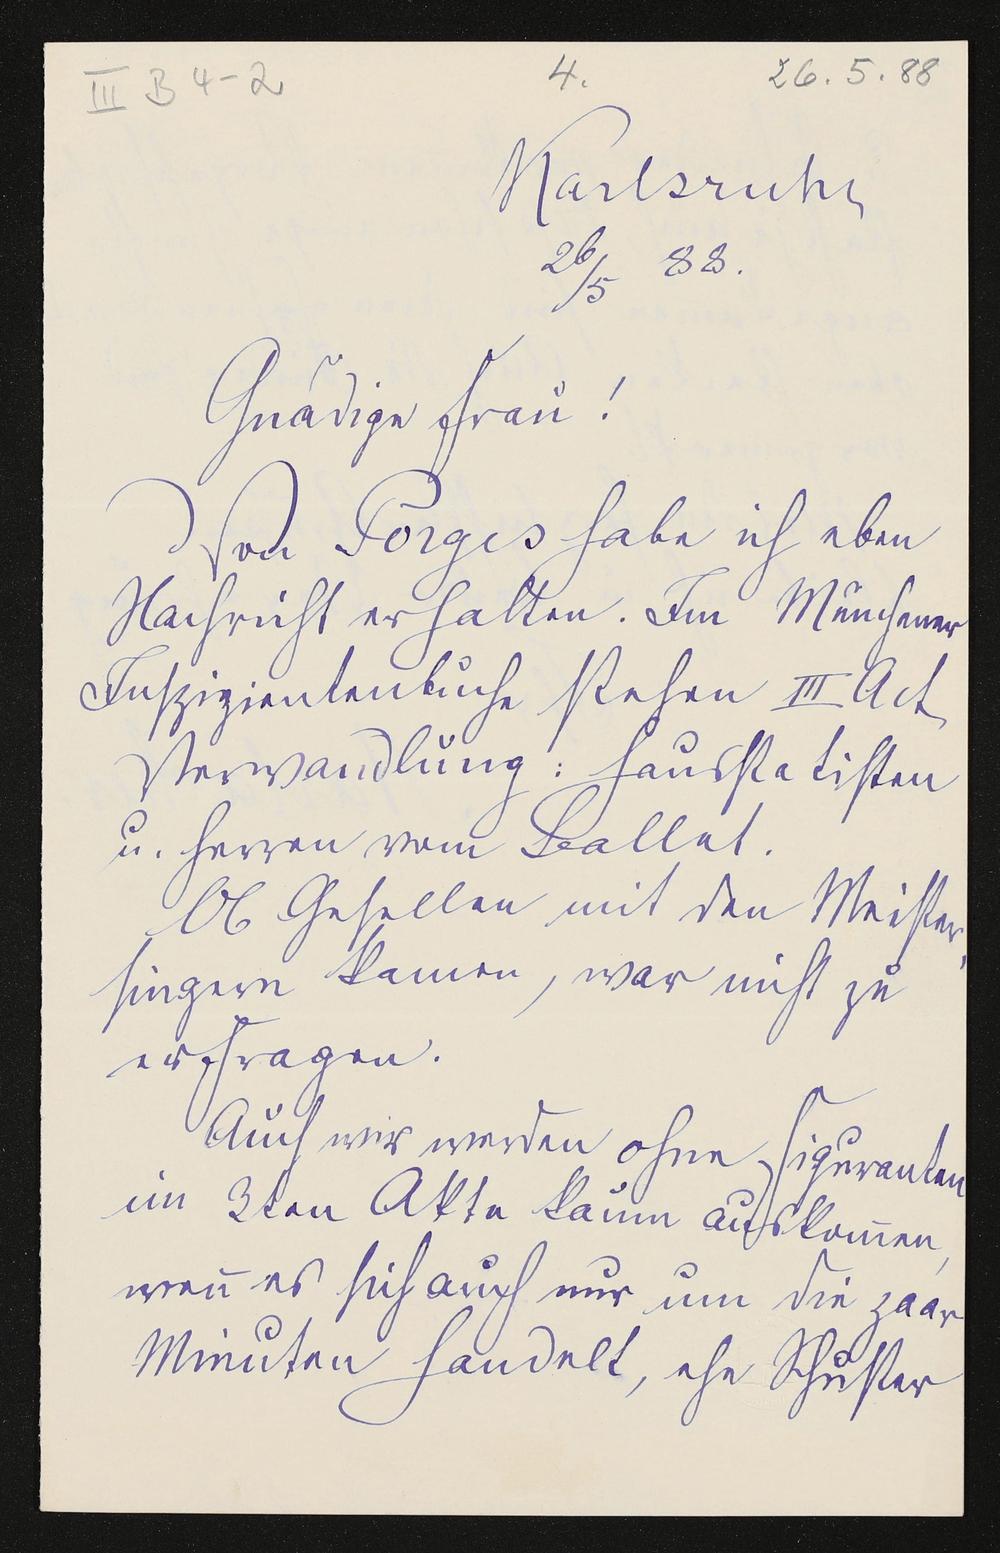 III B 4-2 4. 26.5.88
Karlsruhe
26/5 88.
Gnädige Frau!
Von Porges habe ich eben
Nachricht erhalten. Im Münchener
Inspizientenbuche stehen III Act
Verwandlung: Hausstatisten
u. Herren vom Ballet.
Ob Gesellen mit den Meister-
singern kamen, war nicht zu
erfragen.
Auch wir werden ohne Figuranten
im 3ten Akte kaum auskom̄en,
wen̄ es sich auch nur um die paar
Minuten handelt, ehe Schuster